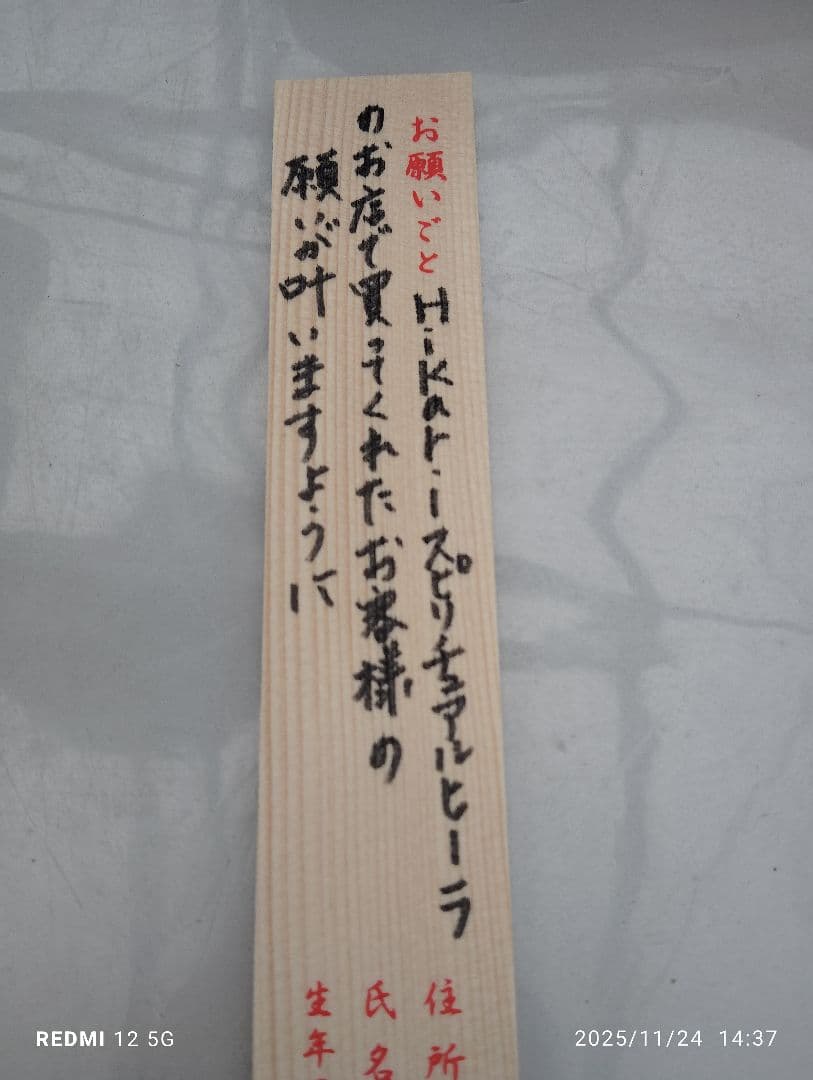 お願いごと Hikariースピリチュアルヒーラ
のお店で買ってくれたお客様の
願いが叶いますように
住所
氏名
生年
REDMI 12 5G
2025/11/24 14:37